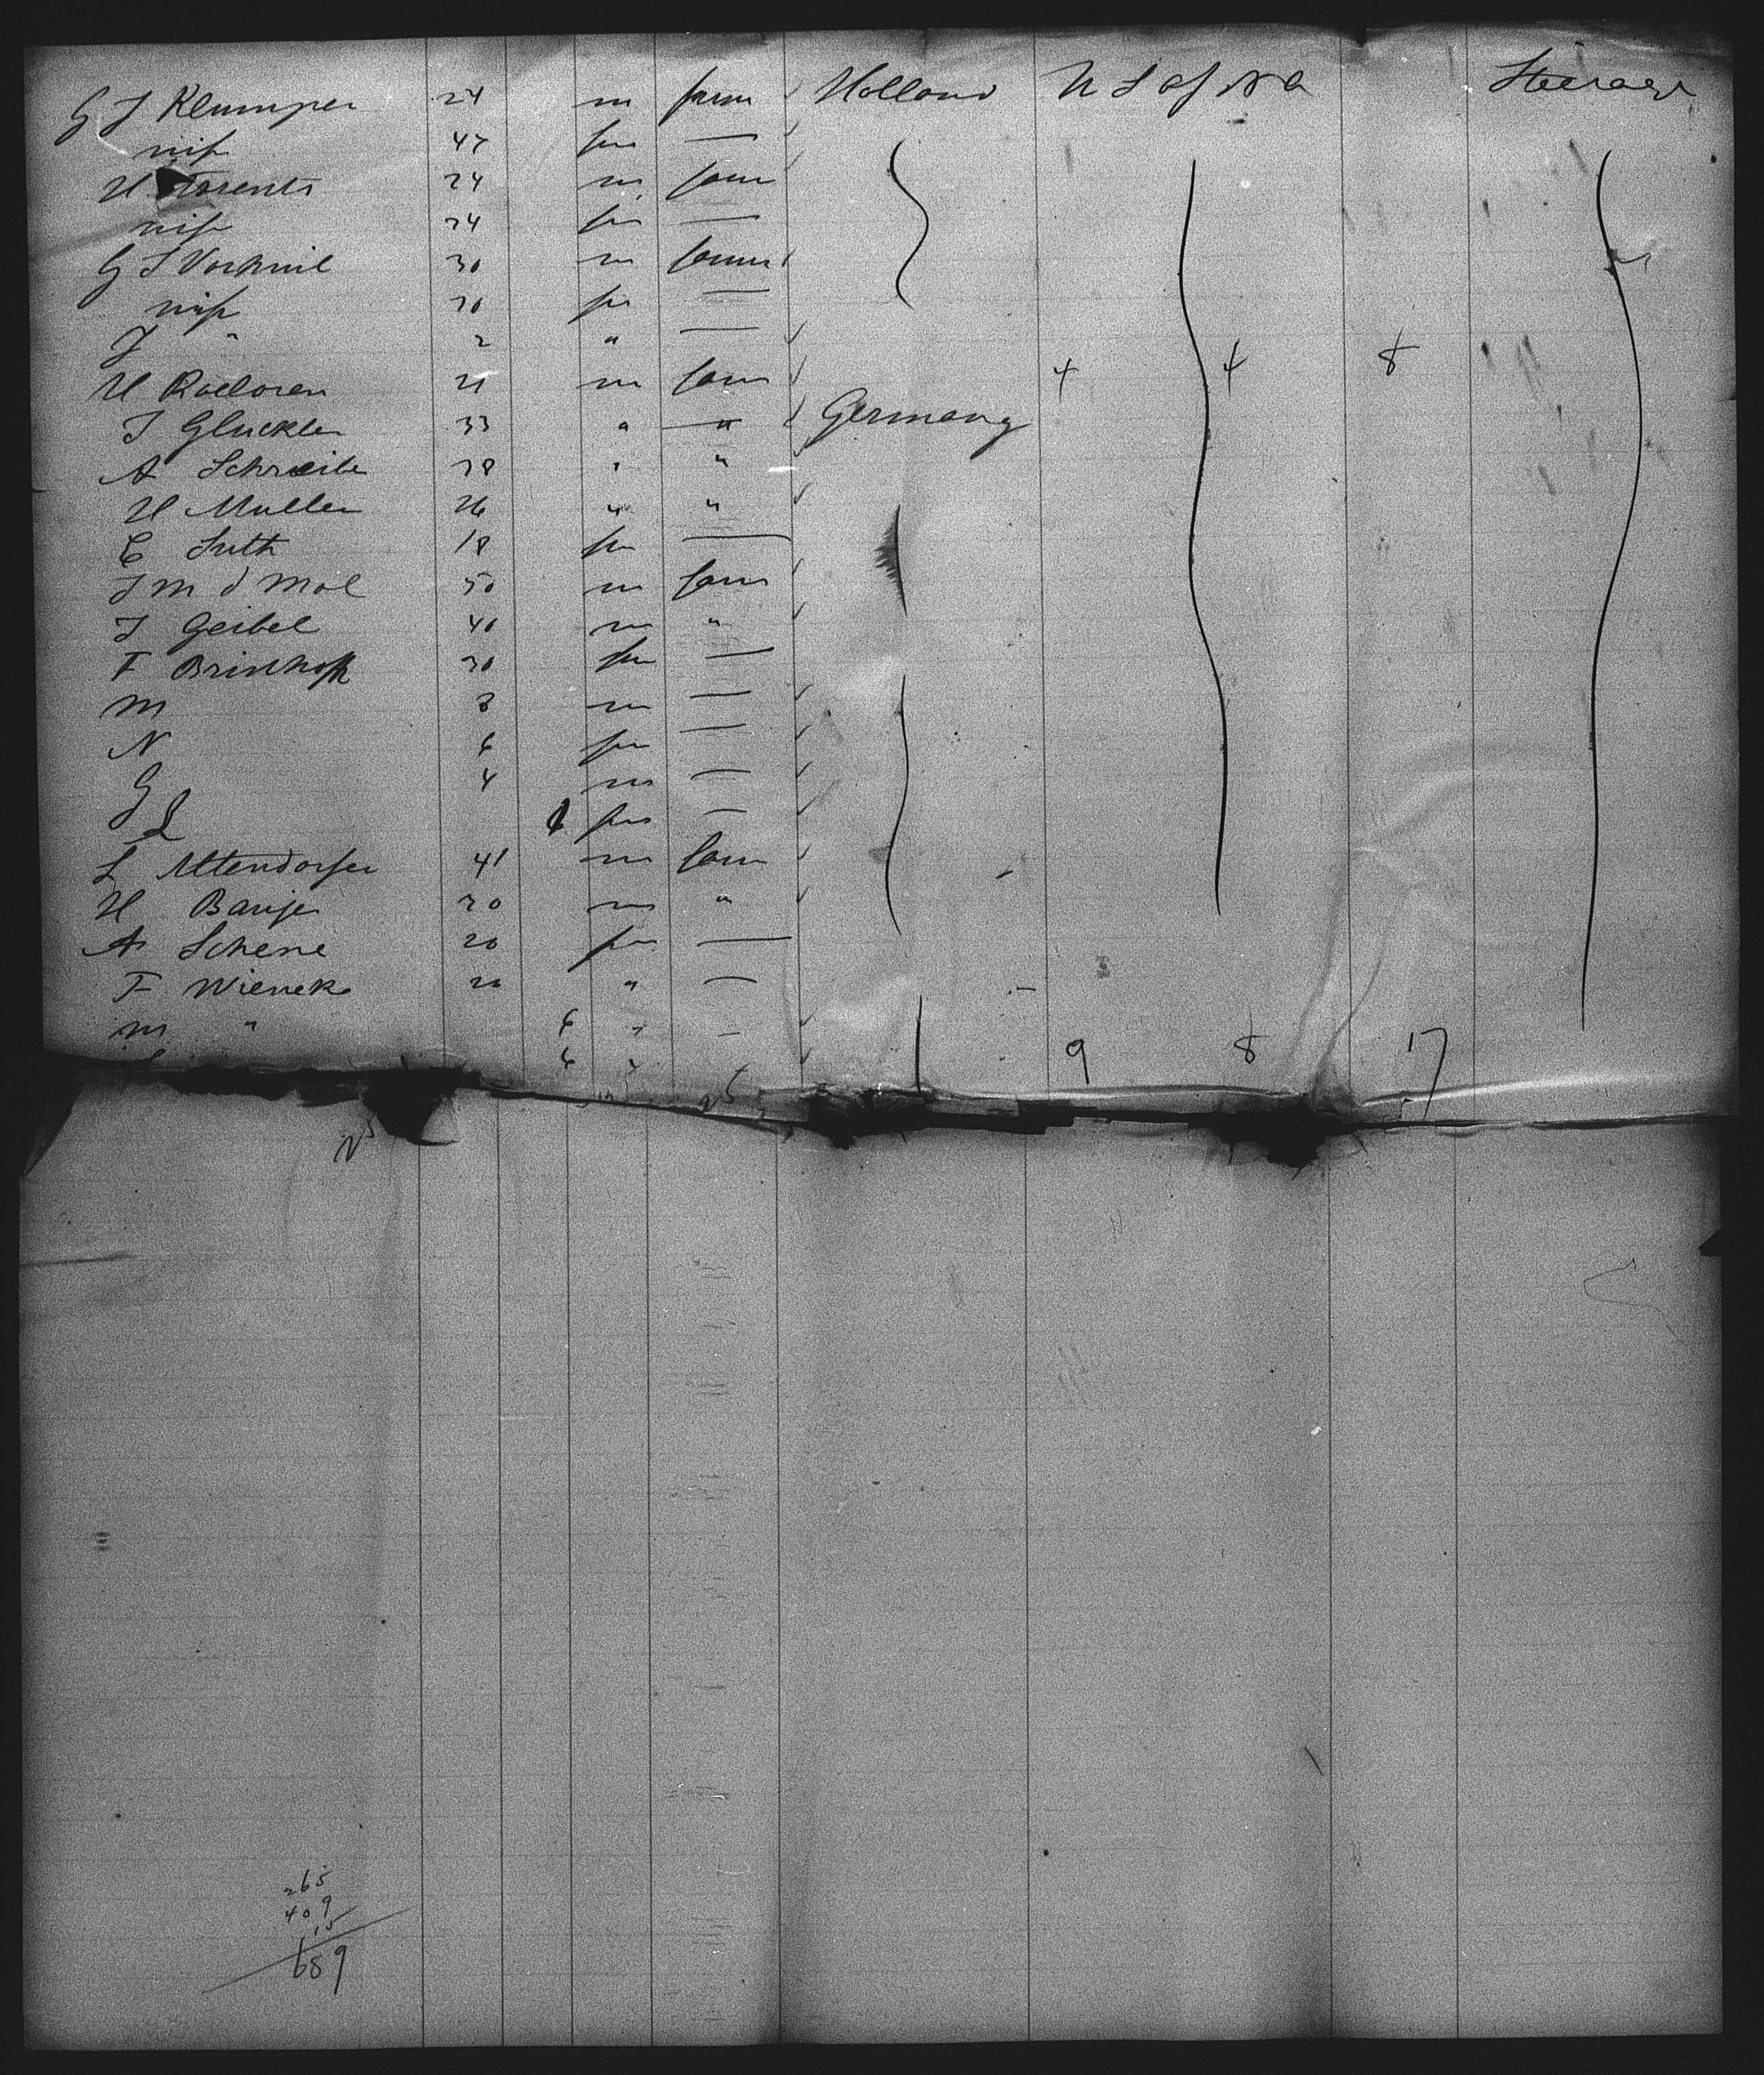 G J Klumper 24 m farm Holland U S of N A Steerage
wife 47 fm —
H Arents 24 m farm
wife 24 fm —
G J Vorknil 30 m farm
wife 30 fm —
J " 2 " —
H 21 m farm 4 4 8
J Gluckler 33 " " Germany
A Schreiber 38 " "
H Muller 26 " "
C Suth 18 fm —
J M d Mol 50 m farm
J Geibel 40 m "
F Brinkhoff 30 fm —
M 8 m —
N 6 fm —
G 4 m —
L fm —
L Altendorfer 41 m farm
H 30 m "
A Schene 20 fm —
F Wieneke 20 " —
M " 6 " —
6 " 9 8 17
25
25
265
409
15
689